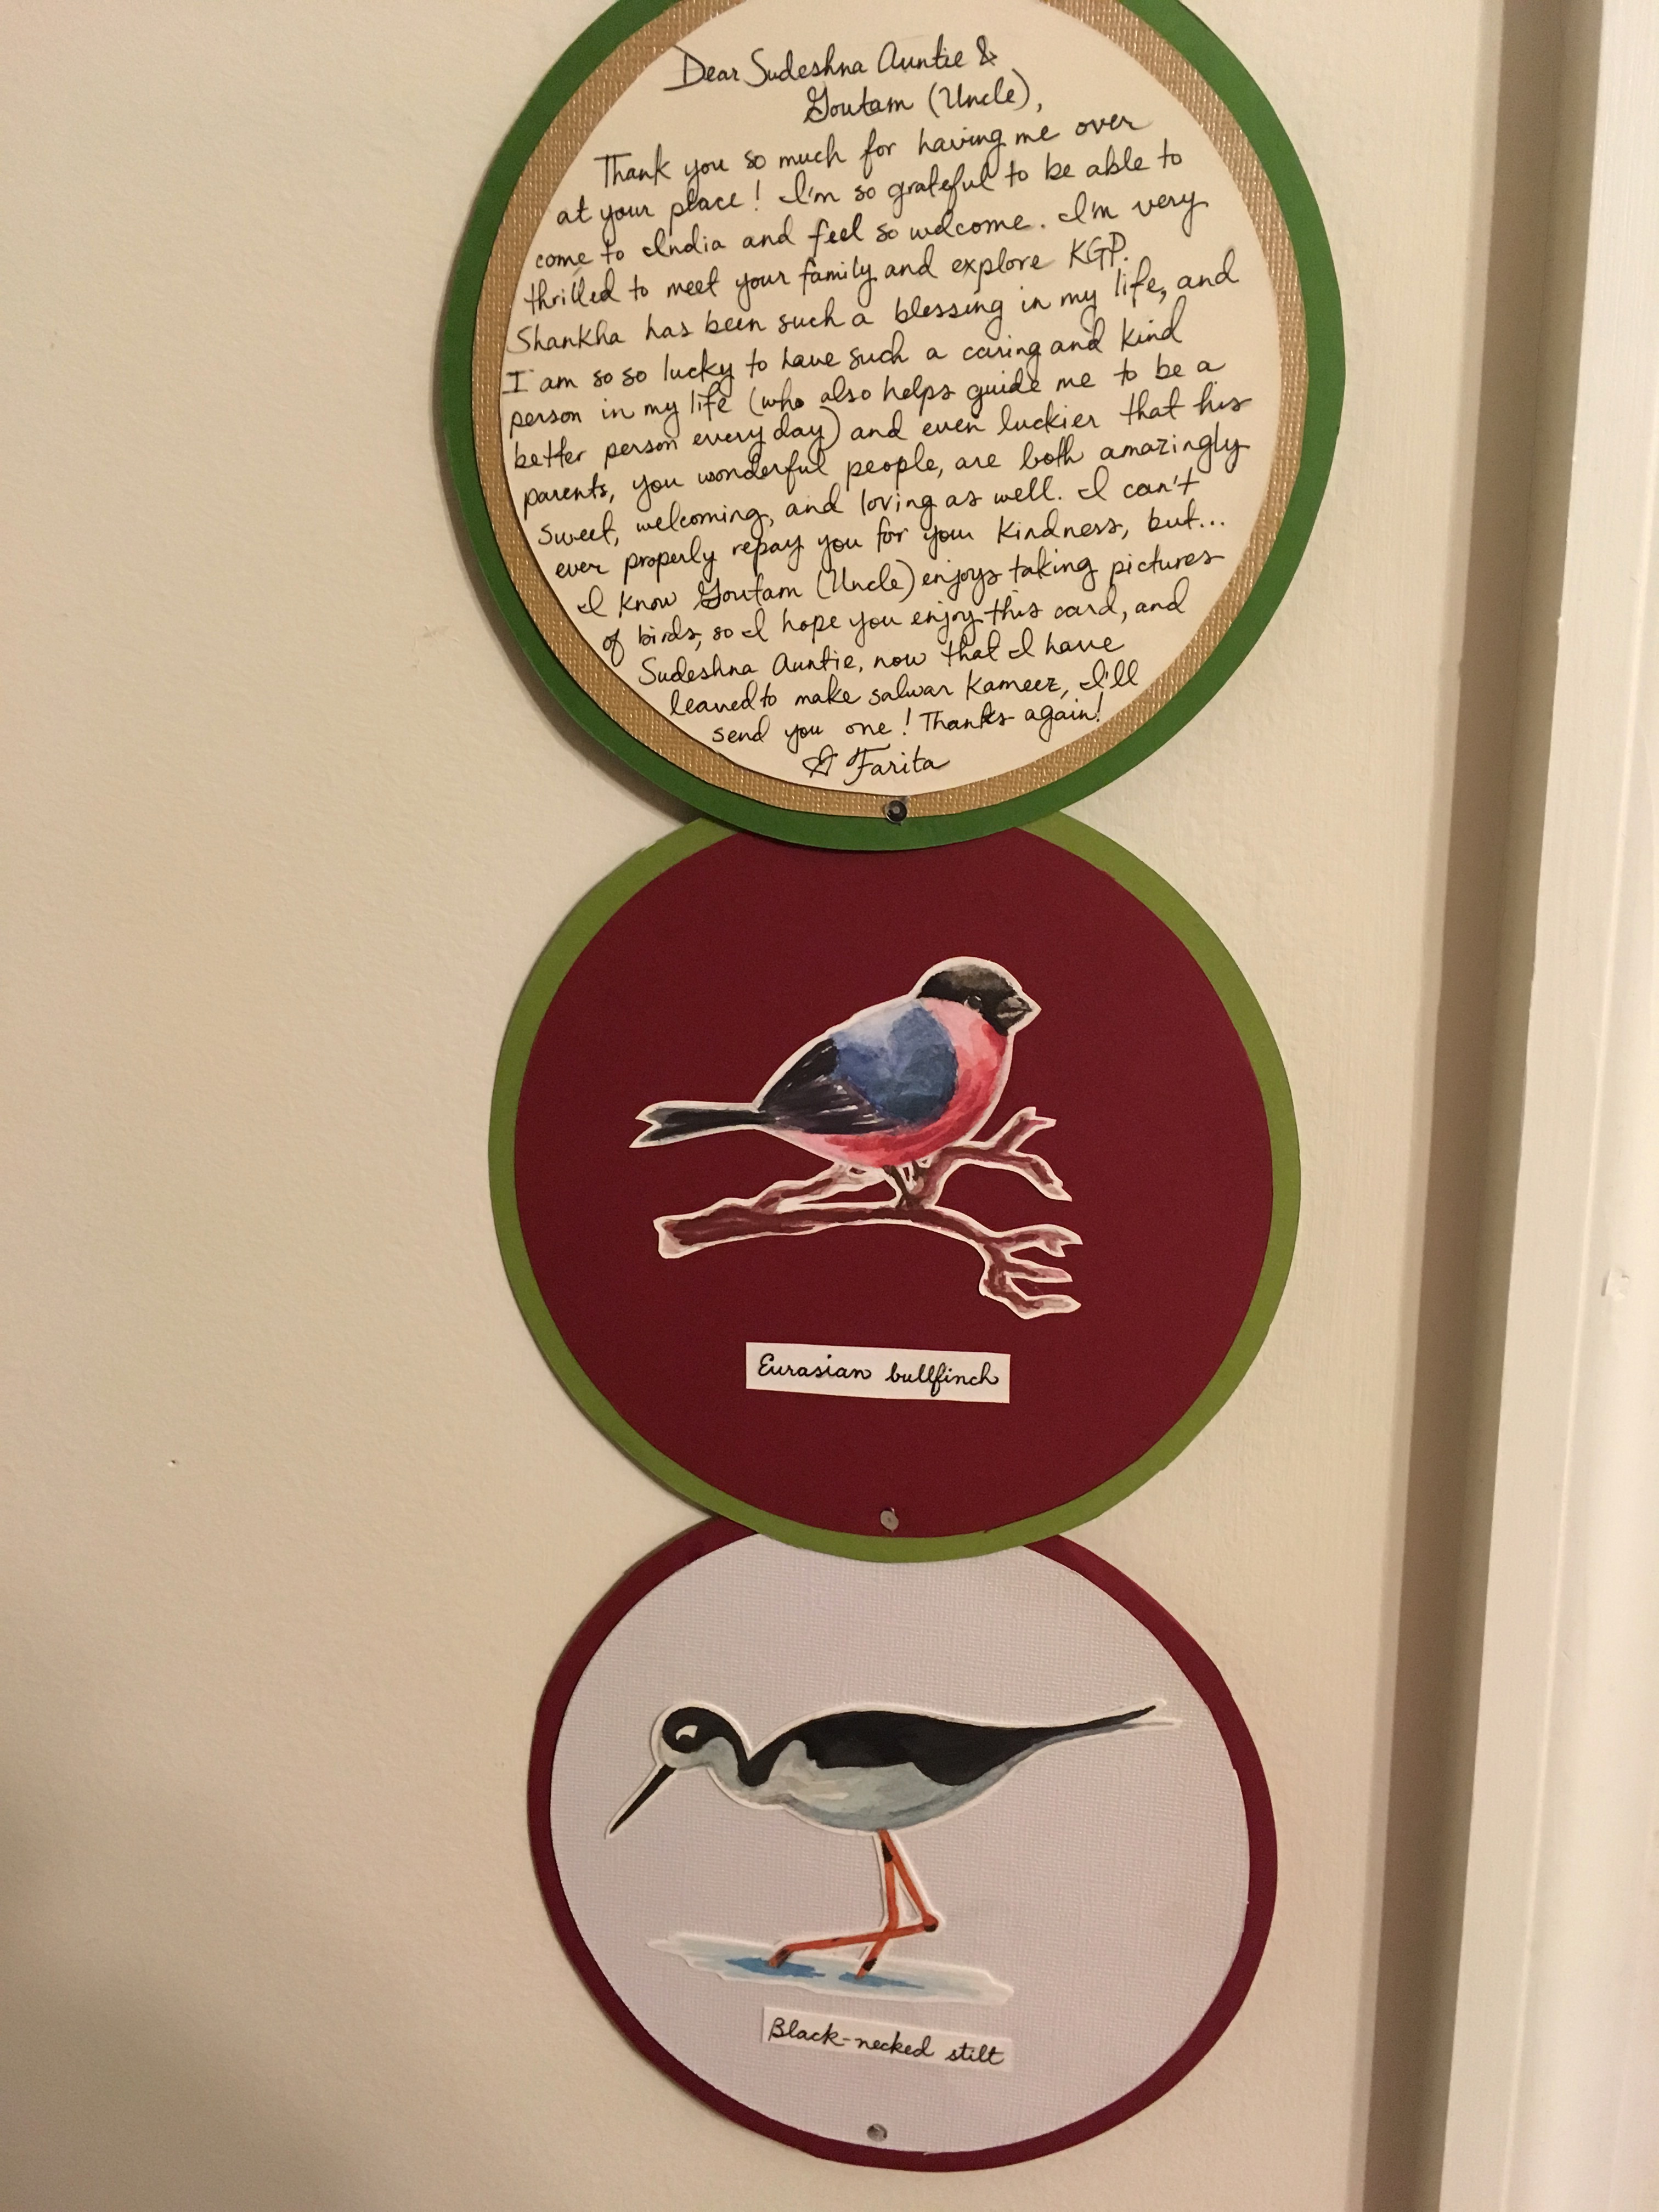 Dear Sudeshna Auntie &
Goutam (Uncle),
Thank you so much for having me over
at your place! I'm so grateful to be able to
come to India and feel so welcome. I'm very
thrilled to meet your family and explore KGP.
Shankha has been such a blessing in my life, and
I am so so lucky to have such a caring and kind
person in my life (who also helps guide me to be a
better person every day) and even luckier that his
parents, you wonderful people, are both amazingly
sweet, welcoming, and loving as well. I can't
ever properly repay you for your kindness, but...
I know Goutam (Uncle) enjoys taking pictures
of birds, so I hope you enjoy this card, and
Sudeshna Auntie, now that I have
learned to make salwar kameez, I'll
send you one! Thanks again!
♡ Farita
Eurasian bullfinch
Black-necked stilt